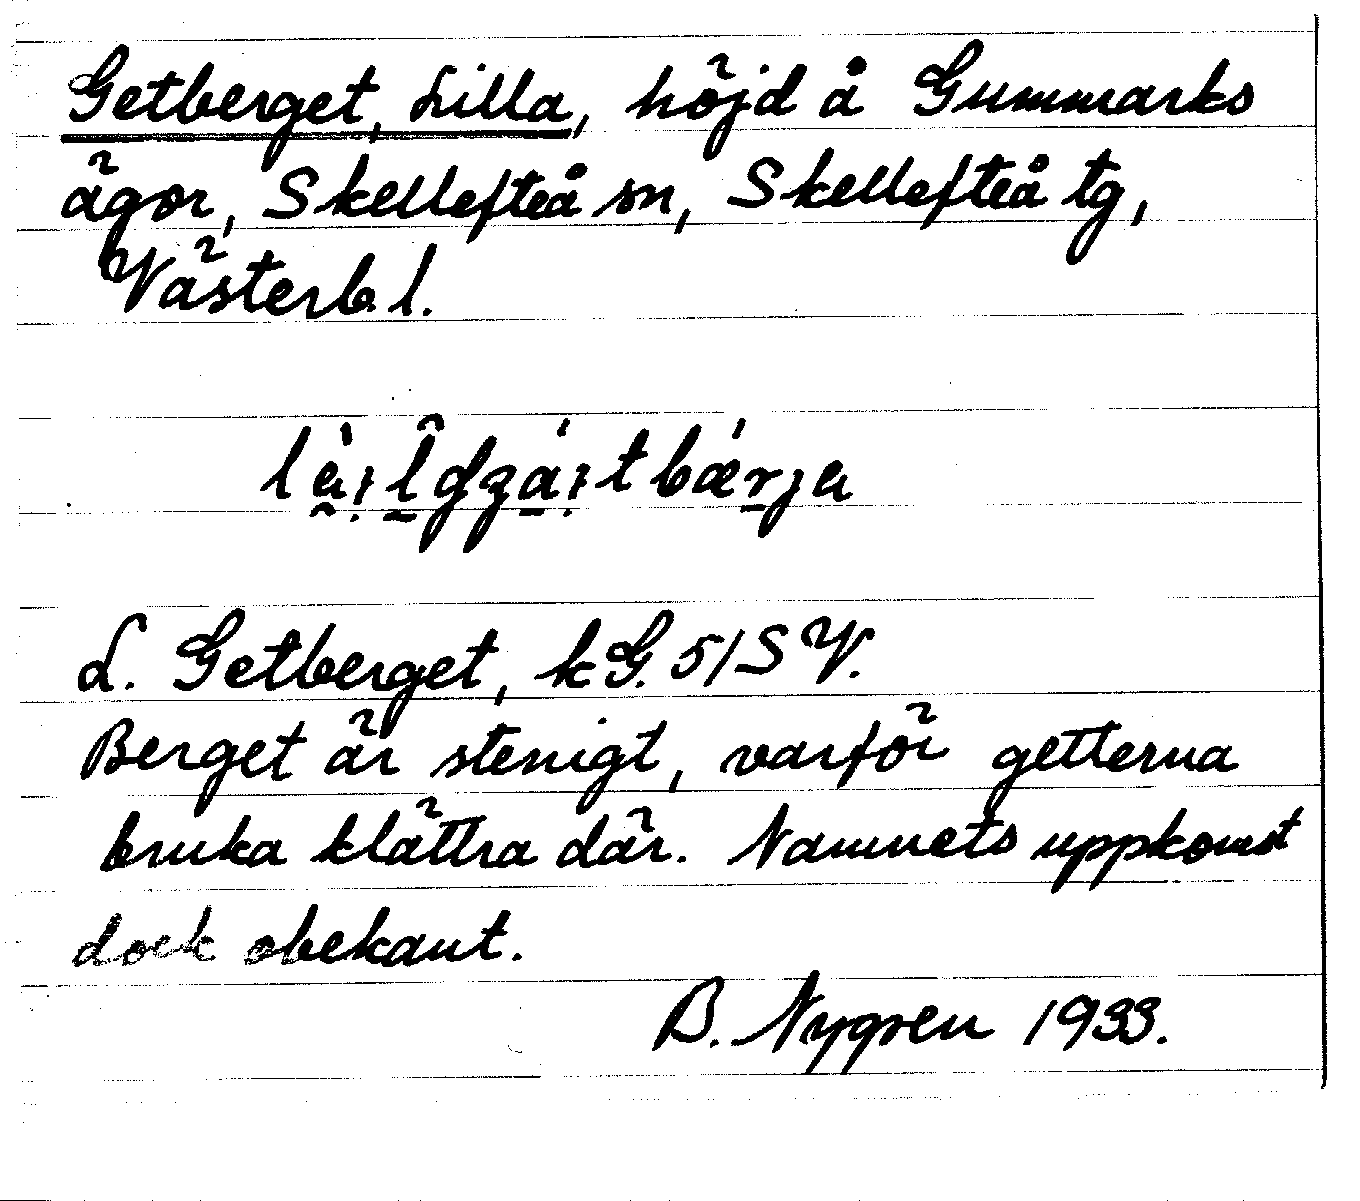 Getberget, Lilla, höjd å Gummarks
ägor, Skellefteå sn, Skellefteå tg,
Västerb. l.
L. Getberget, kG. 51SV.
Berget är stenigt, varför getterna
bruka klättra där. Namnets uppkomst
dock obekant.
B. Nygren 1933.